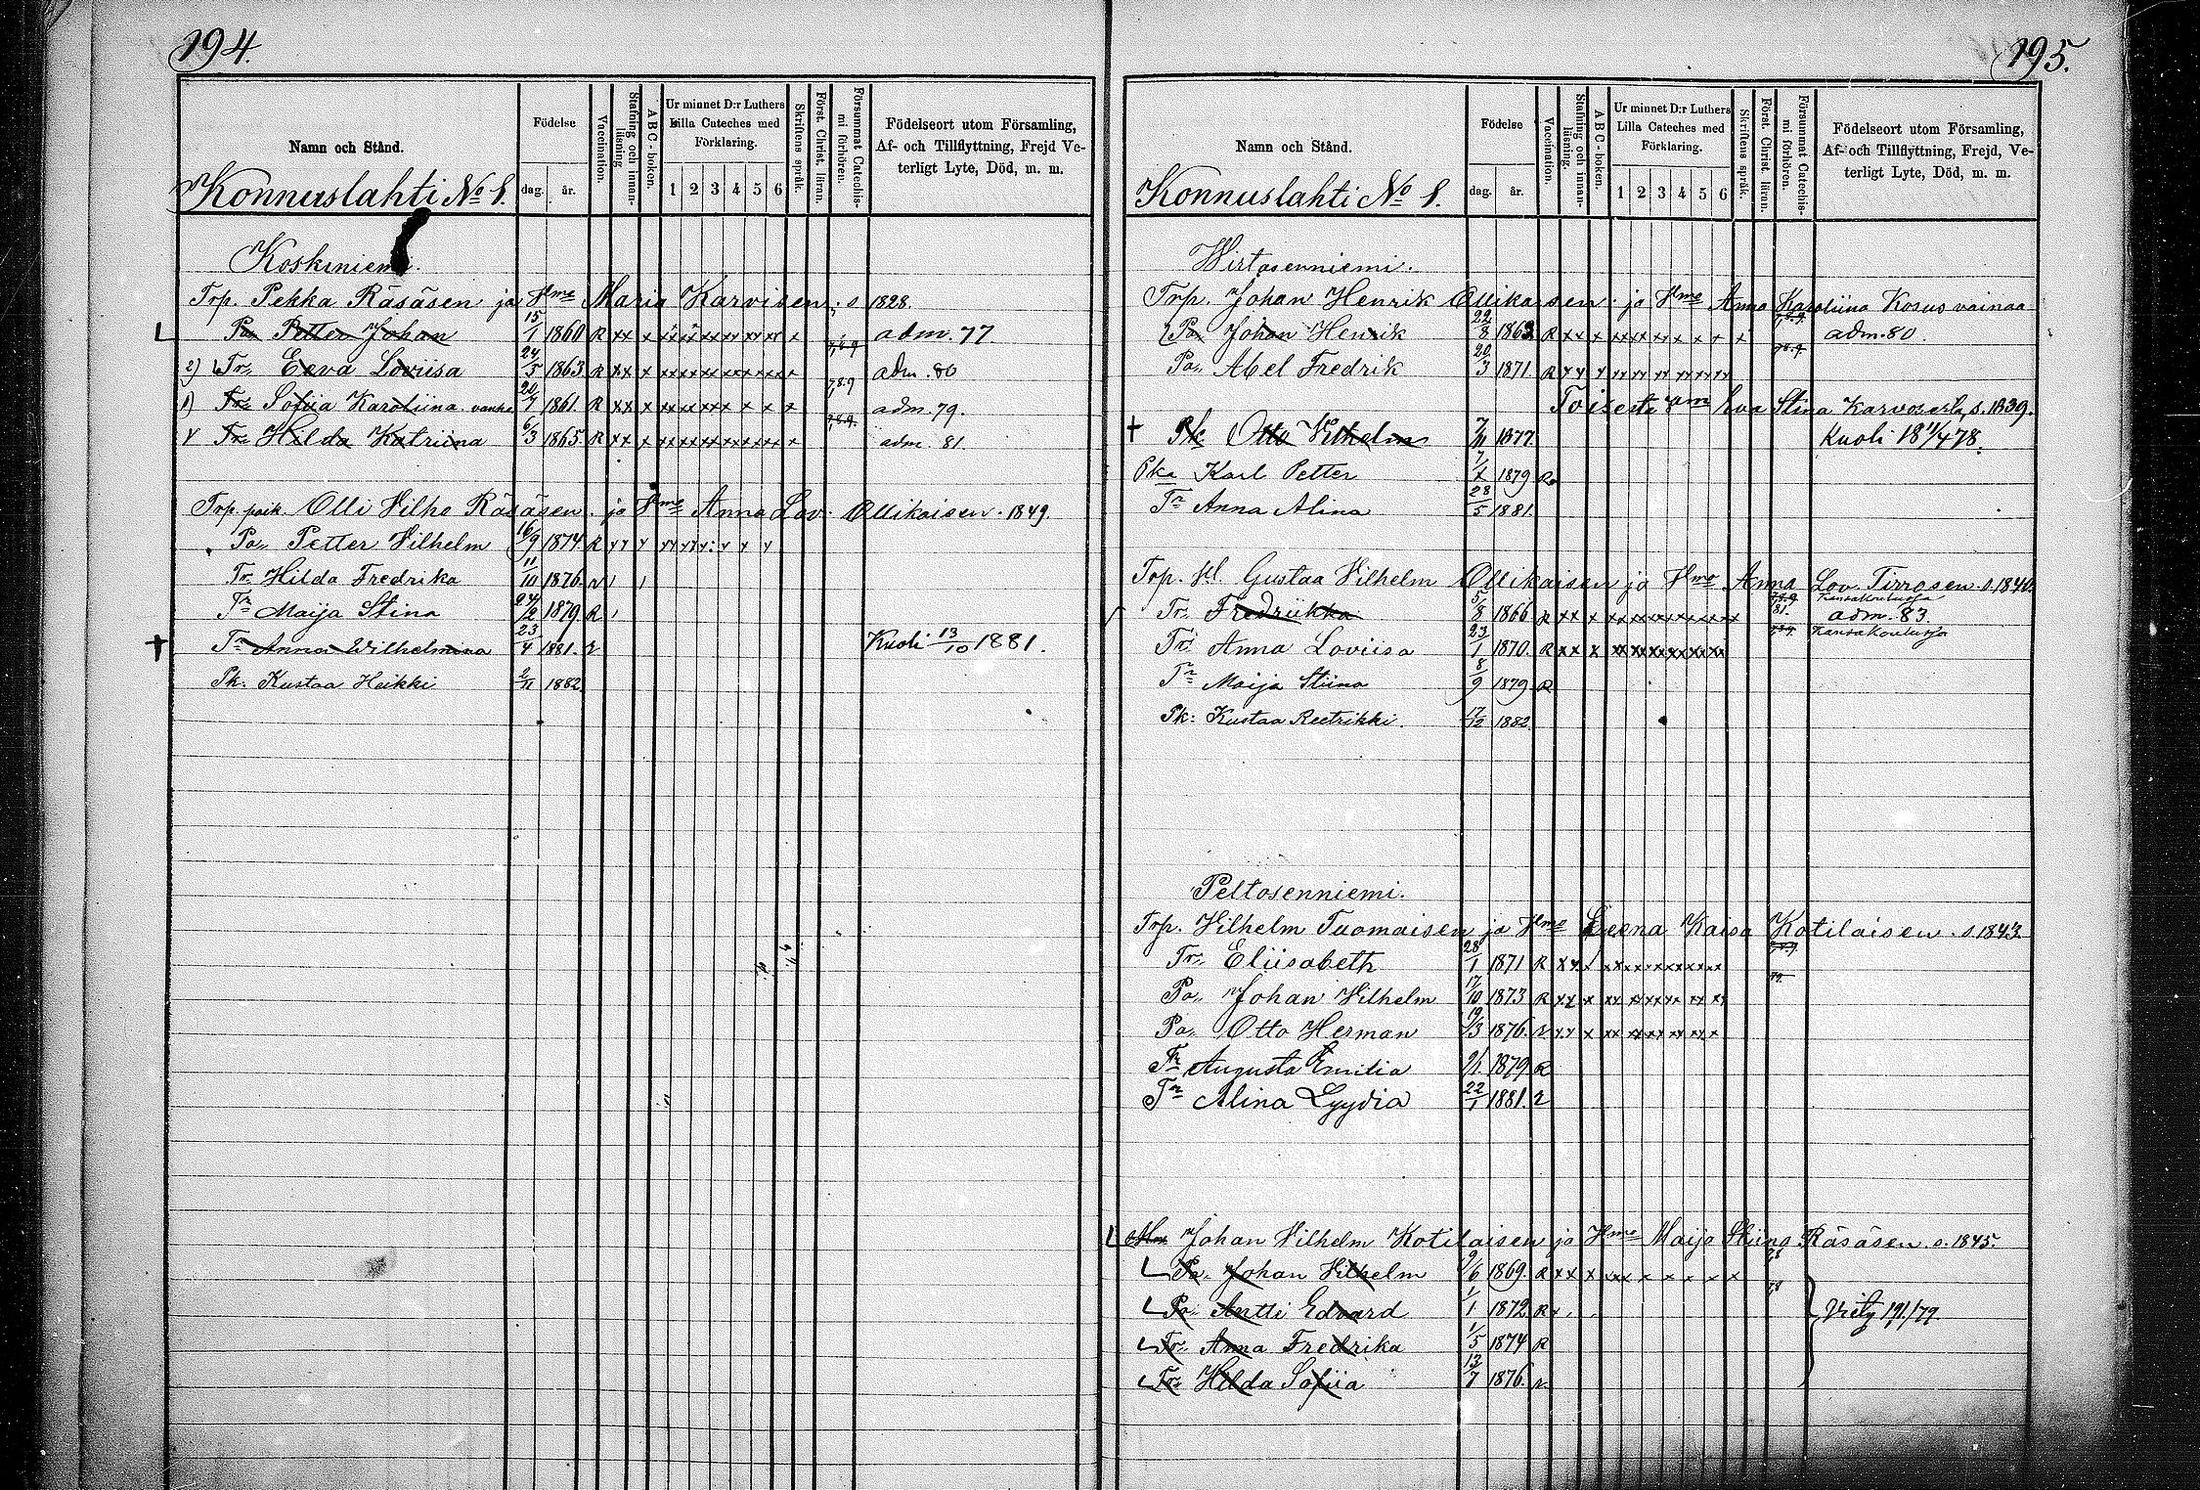 194.
Namn och Stånd.
Födelse
dag. år.
Vaccination.
Stafning och innan-läsning
ABC-boken.
Ur minnet D:r Luthers Lilla Cateches med Förklaring.
1 2 3 4 5 6
Skriftens språk.
Först. Christ. läran.
Försummat Catechismi förhören.
Födelseort utom Församling, Af- och Tillflyttning, Frejd Veterligt Lyte, Död, m. m.
Konnuslahti No 8.
Koskiniemi.
Trp. Pekka Räsäsen ja Hme Maria Karvisen. s 1828.
Pa Petter Johan 15/1 1860 R adm. 77
2) Tr. Eeva Loviisa 24/5 1863 R 7,8,9 adm. 80
1) Tr. Sofiia Karoliina vanha 20/7 1861. R 7,8,9 adm. 79.
Tr. Hilda Katriina 6/3 1865. R 7,8,9. adm. 81.
Trp. poik. Olli Vilho Räsäsen. ja Hme Anna Lov. Ollikaisen. 1849
Po. Petter Vilhelm 16/9 1874 R
Tr. Hilda Fredrika 11/10 1876
Tr Maija Stina 24/2 1879. R
Tr Anna Wilhelmina 23/4 1881. Kuoli 13/10 1881.
Pk. Kustaa Heikki 2/11 1882
195.
Namn och Stånd.
Födelse
dag. år.
Vaccination.
Stafning och innan-läsning.
ABC-boken.
Ur minnet D:r Luthers Lilla Cateches med Förklaring.
1 2 3 4 5 6
Skriftens språk.
Först. Christ. läran.
Försummat Catechismi förhören.
Födelseort utom Församling, Af- och Tillflyttning, Frejd, Veterligt Lyte, Död, m. m.
Konnuslahti No 8.
Wirtasenniemi.
Trp. Johan Henrik Ollikaisen. ja Hme Anna Karoliina Kosus vainaa
Po Johan Henrik 22/8 1863. R adm. 80.
Po. Abel Fredrik 20/3 1871. R
Toisesta Eva Stina Karvosesta s. 1839.
Pk Otto Vilhelm 1877. Kuoli 18 11/4 78.
Pka Karl Petter 1879
Tr Anna Alina 28/5 1881.
Trp. Gustaa Vilhelm Ollikaisen ja Hme Anna Lov. Tirrosen. s. 1840.
Tr. Fredriikka 5/8 1866 R 81. Kansakoulussa adm. 83.
Tr. Anna Loviisa 23/1 1870. R Kansakoulussa
Tr Maija Stiina 8/9 1879. R
Pk: Kustaa Reetrikki. 17/12 1882
Peltosenniemi.
Trp. Vilhelm Tuomaisen ja Hme Leena Kaisa Kotilaisen. s. 1843.
Tr. Eliisabeth 28/1 1871 R
Po. Johan Vilhelm 17/10 1873 R 79.
Po. Otto Herman 19/3 1876.
Tr Augusta Emilia 1879 R
Tr Alina Lyydia 22/1 1881.
Johan Vilhelm Kotilaisen ja Hme Maija Stiina Räsäsen. s. 1845.
Po. Johan Vilhelm 9/6 1869. R 78
Po. Antti Edvard 1/1 1872. R 78
Tr. Anna Fredrika 1/5 1874 R
Tr. Hilda Sofiia 13/7 1876.